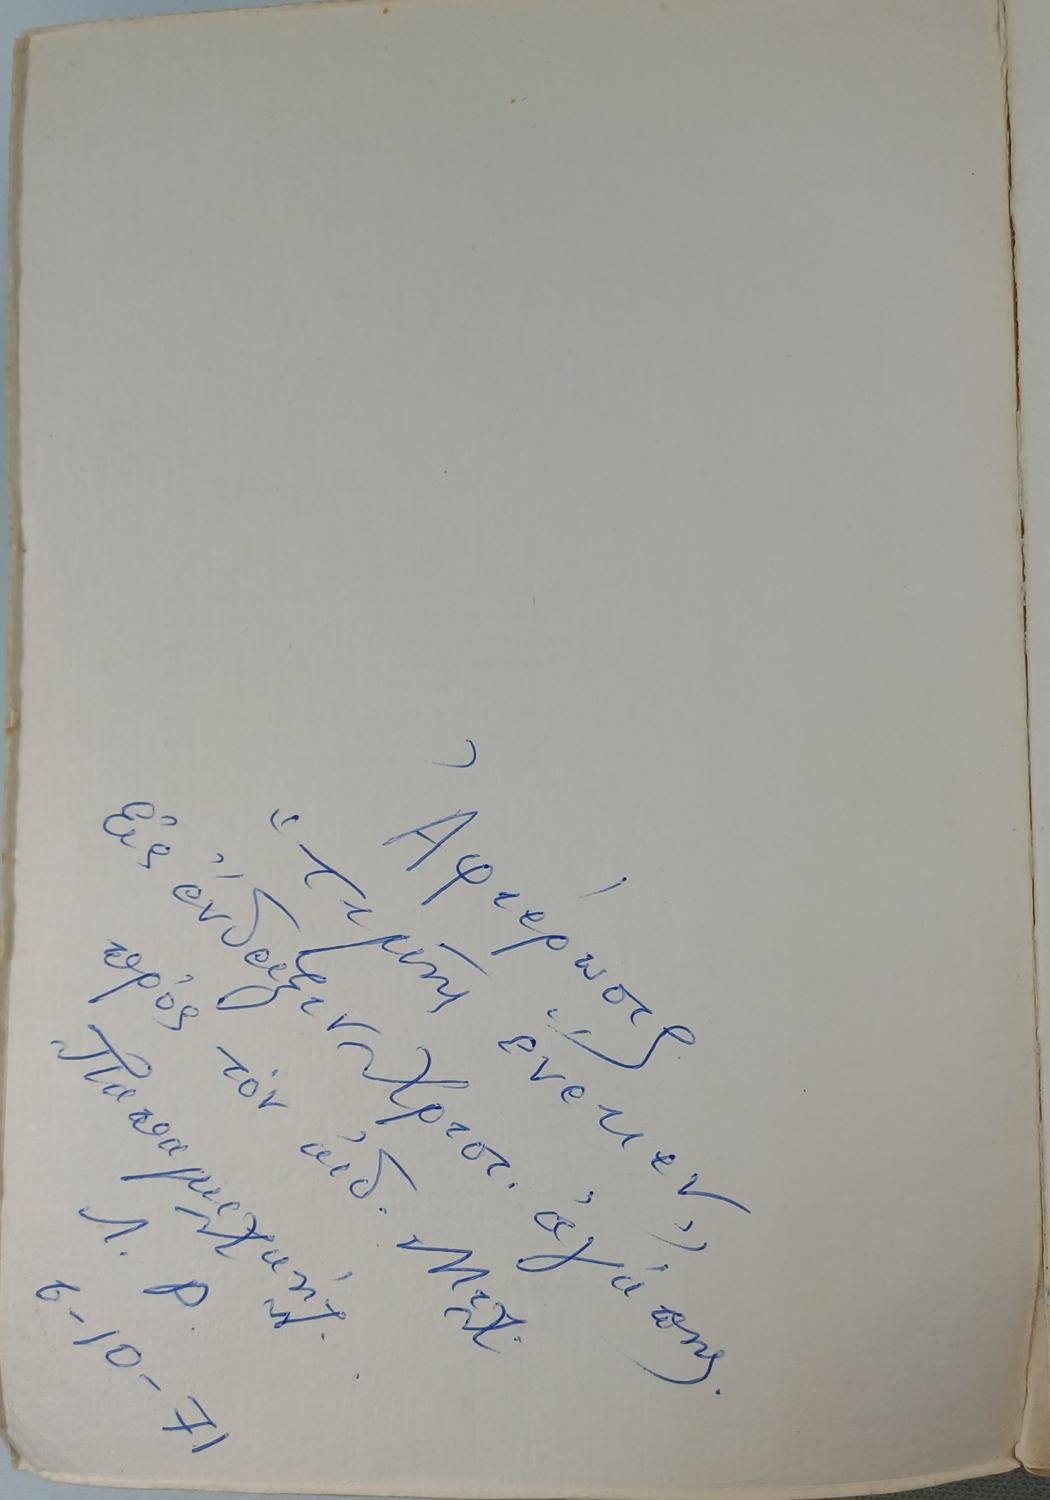 Ἀφιέρωσις
"τιμῆς ἕνεκεν"
Εἰς ἔνδειξιν Χριστ. ἀγάπης.
πρός τόν αἰδ. Μιχ.
Παπαμιχαήλ.
Λ. Φ.
6-10-71